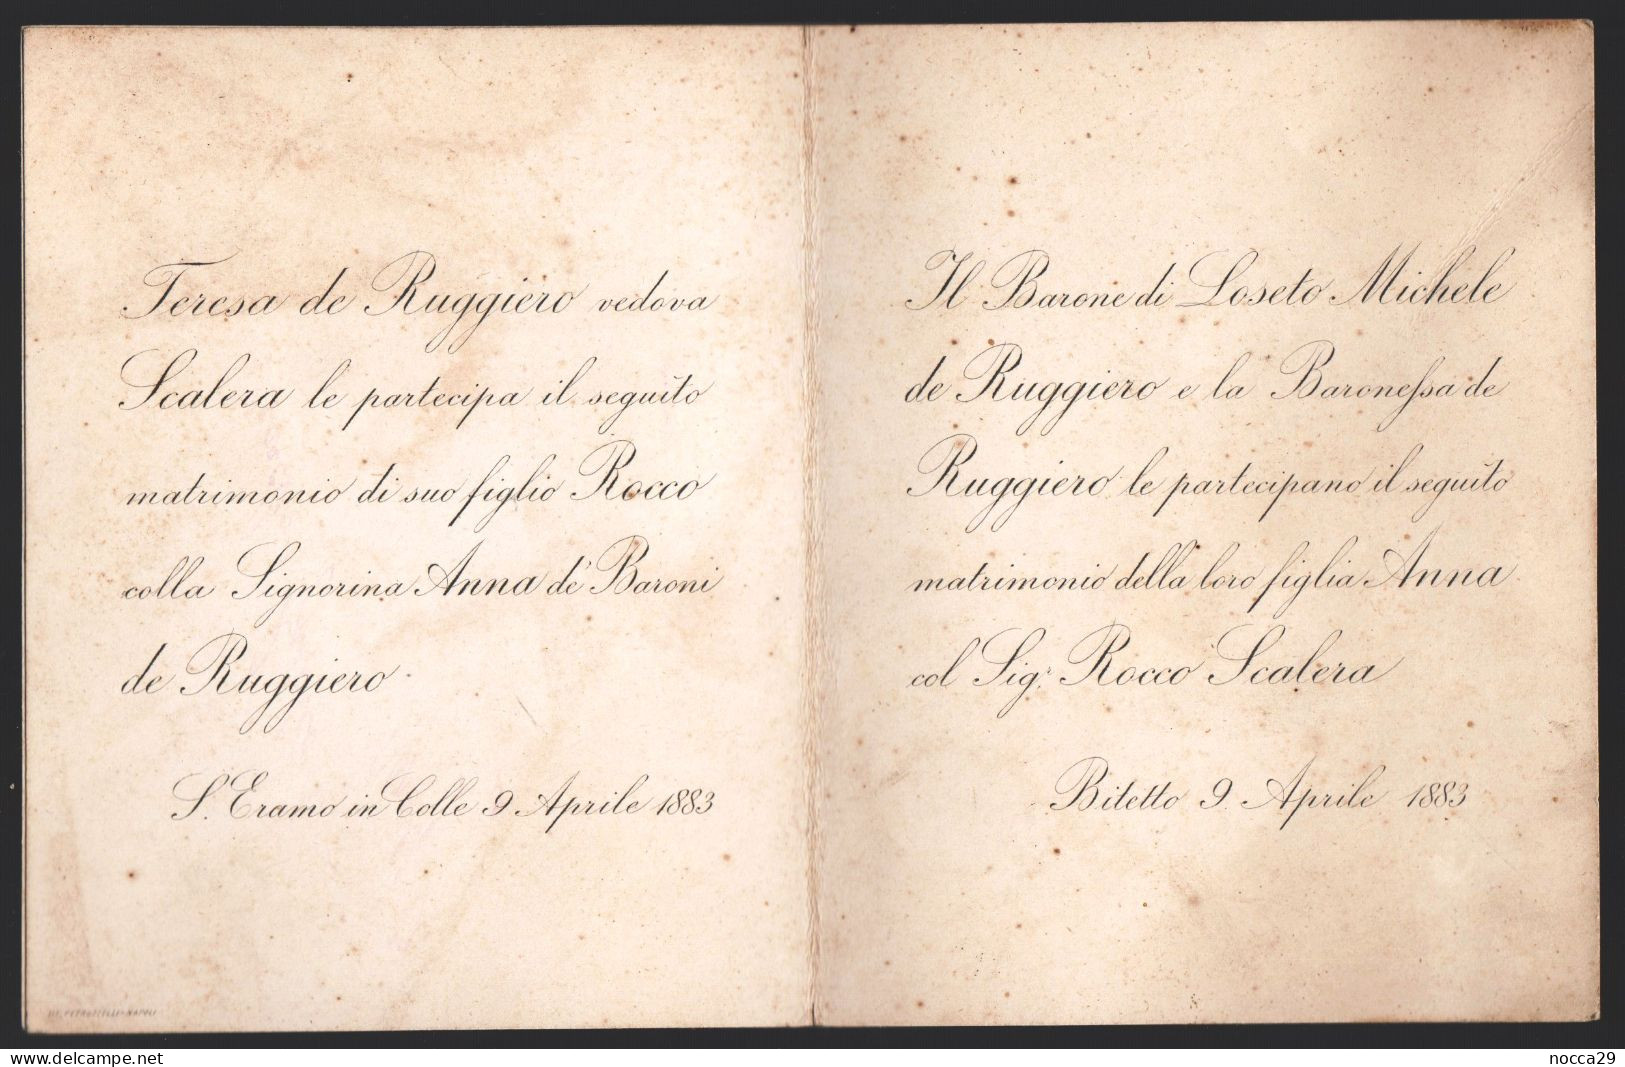 Teresa de Ruggiero vedova
Scalera le partecipa il seguito
matrimonio di suo figlio Rocco
colla Signorina Anna de' Baroni
de Ruggiero
S. Eramo in Colle 9 Aprile 1883
Il Barone di Loseto Michele
de Ruggiero e la Baroneſsa de
Ruggiero le partecipano il seguito
matrimonio della loro figlia Anna
col Sig.r Rocco Scalera
Bitetto 9. Aprile 1883
NAPOLI
www.delcampe.net
nocca29